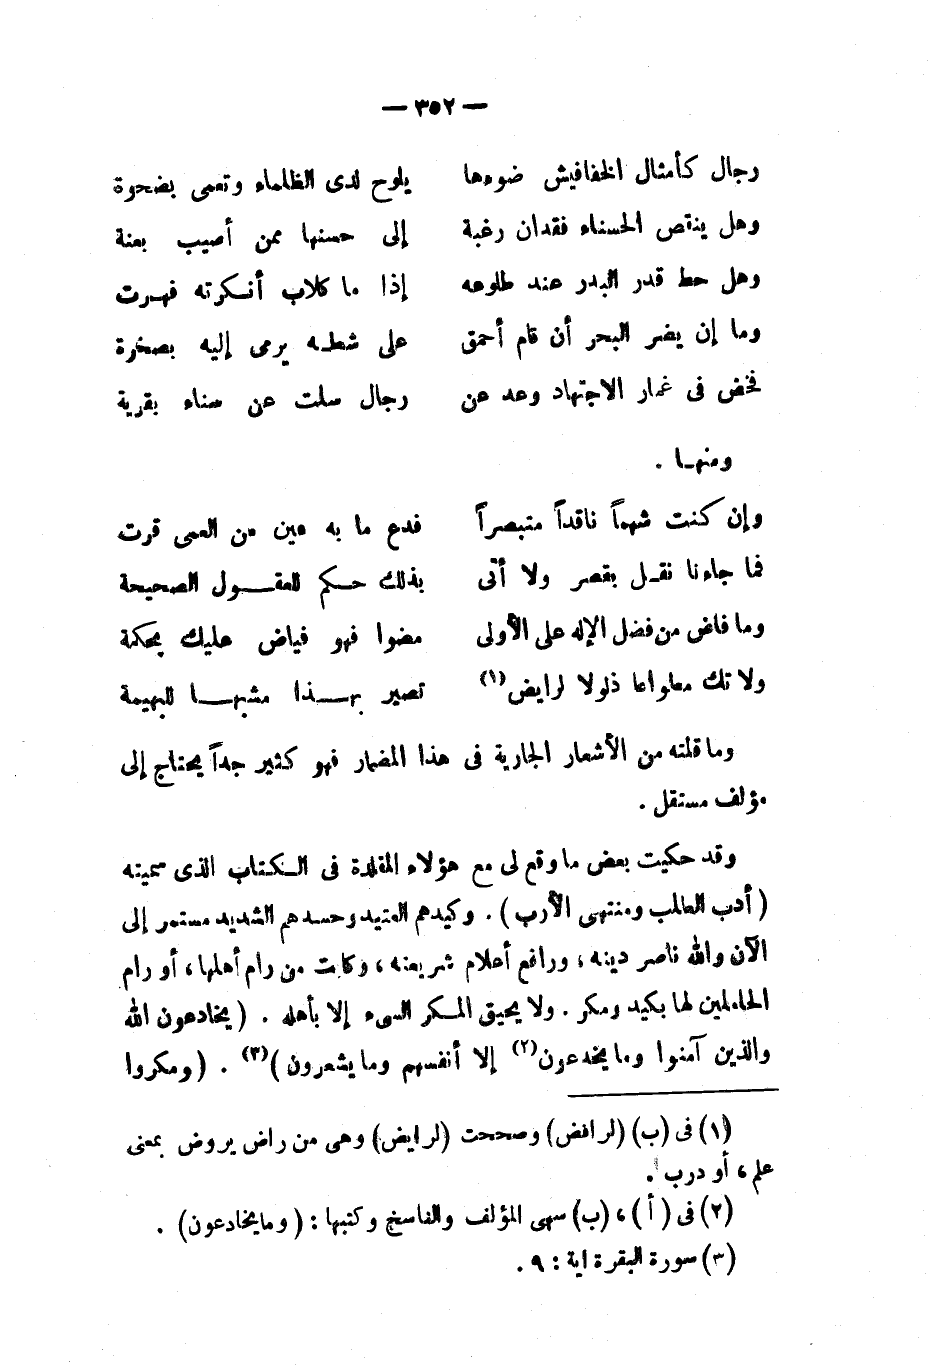 — ٣٥٢ —
رجال كأمثال الخفافيش ضوءها يلوح لدى الظلماء وتعمى بضحوة
وهل ينقص الحسناء فقدان رغبة إلى حسنها ممن أصيب بعنة
وهل حط قدر البدر عند طلوعه إذا ما كلاب أنكرته فهرت
وما إن يضر البحر أن قام أحمق على شطه يرمى إليه بصخرة
فخض فى غمار الاجتهاد وعد عن رجال سلت عن سناء بقرية
ومنها .
وإن كنت شهماً ناقداً متبصراً فدع ما به عين من العمى قرت
فما جاءنا نقل بقصر ولا أتى بذلك حكم للعقول الصحيحة
وما فاض من فضل الإله على الأولى مضوا فهو فياض عليك بحكمة
ولا تك مطواعا ذلولا لرايض(١) تصير بهذا مشبها للبهيمة
وما قلته من الأشعار الجارية فى هذا المضمار فهو كثير جداً يحتاج إلى
مؤلف مستقل .
وقد حكيت بعض ما وقع لى مع هؤلاء المقلدة فى الكتاب الذى سميته
( أدب الطالب ومنتهى الأرب ) . وكيدهم العتيد وحسدهم الشديد مستمر إلى
الآن والله ناصر دينه ، ورافع أعلام شريعته ، وكابت من رام أهلها ، أو رام
الحاملين لها بكيد ومكر . ولا يحيق المكر السىء إلا بأهله . ( يخادعون الله
والذين آمنوا وما يخدعون(٢) إلا أنفسهم وما يشعرون )(٣) . ( ومكروا
(١) فى (ب) (لرافض) وصححت (لرايض) وهى من راض يروض بمعنى
علم ، أو درب .
(٢) فى ( أ ) ، (ب) سهى المؤلف والناسخ وكتبها : ( وما يخادعون ) .
(٣) سورة البقرة اية : ٩ .